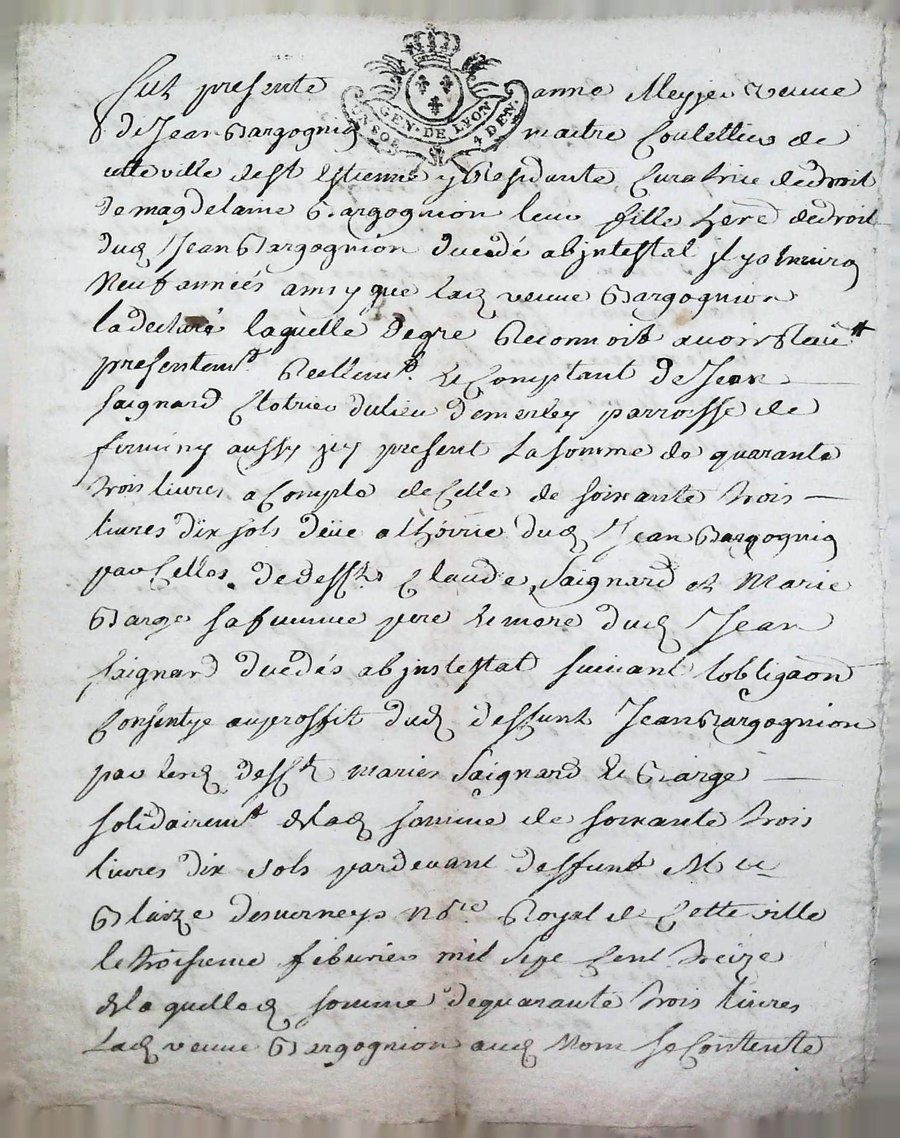 Fut presente anne Meyjer veuve
GEN. DE LYON
UN SOL 4 DEN.
de Jean Bargognion maitre Coutellier de
cette ville de st Estienne y Residante, Curatrice de droit
de magdelaine Bargognion leur fille hered de droit
dud Jean Bargognion decedé abjntestat jl y a environ
Neuf années ainsy que lad veuve Bargognion
la declaré laquelle de gre Reconnoit avoir Reçeu
presentemt Reellemt et Comptant de Jean
Saignard Clotrier du lieu demerley parroisse de
firminy aussy jcy present La somme de quarante
trois livres a Compte de Celle de soixante trois
livres dix sols deüe a lhoirie dud Jean Bargognion
par Celles de deffts Claude Saignard et Marie
Barge sa femme pere et mere dud Jean
Saignard decedés abjntestat suivant lobligaon
Consentye au proffit dud deffunt Jean Bargognion
par lesd deffts mariés Saignard et Barge
solidairemt de lad somme de soixante trois
livres dix sols pardevant deffunt Me
Blaize desverneys nore Royal de Cette ville
le troisieme febvrier mil sept Cent treize
de laquelle d somme de quarante trois livres
Lad veuve Bargognion aud Nom se Contente